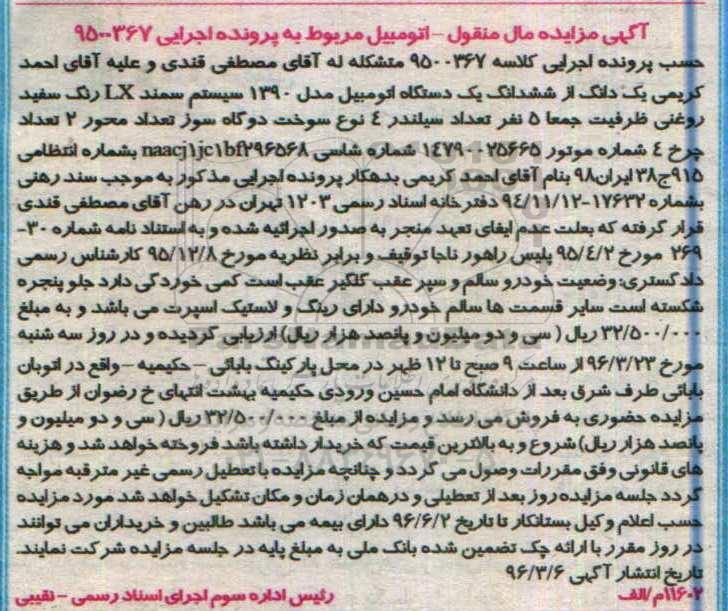 آگهی مزایده مال منقول - اتومبیل مربوط به پرونده اجرایی ۹۵۰۰۳۶۷
حسب پرونده اجرایی کلاسه ۹۵۰۰۳۶۷ متشکله له آقای مصطفی قندی و علیه آقای احمد
کریمی یک دانگ از ششدانگ یک دستگاه اتومبیل مدل ۱۳۹۰ سیستم سمند LX رنگ سفید
روغنی ظرفیت جمعا ۵ نفر تعداد سیلندر ۴ نوع سوخت دوگانه سوز تعداد محور ۲ تعداد
چرخ ۴ شماره موتور ۱۴۷۹۰۰۲۵۶۶۵ شماره شاسی naacj1jc1bf۲۹۶۵۶۸ بشماره انتظامی
۹۱۵ج۳۸ ایران۹۸ بنام آقای احمد کریمی بدهکار پرونده اجرایی مذکور به موجب سند رهنی
بشماره ۱۷۶۳۲-۹۴/۱۱/۱۲ دفترخانه اسناد رسمی ۱۲۰۳ تهران در رهن آقای مصطفی قندی
قرار گرفته که بعلت عدم ایفای تعهد منجر به صدور اجرائیه شده و به استناد نامه شماره ۳۰-
۲۶۹ مورخ ۹۵/۴/۲ پلیس راهور ناجا توقیف و برابر نظریه مورخ ۹۵/۱۲/۸ کارشناس رسمی
دادگستری: وضعیت خودرو سالم و سپر عقب گلگیر عقب است کمی خوردگی دارد جلو پنجره
شکسته است سایر قسمت ها سالم خودرو دارای رینگ و لاستیک اسپرت می باشد و به مبلغ
۳۲/۵۰۰/۰۰۰ ریال (سی و دو میلیون و پانصد هزار ریال) ارزیابی گردیده و در روز سه شنبه
مورخ ۹۶/۳/۲۳ از ساعت ۹ صبح تا ۱۲ ظهر در محل پارکینگ بابائی - حکیمیه - واقع در اتوبان
بابائی طرف شرق بعد از دانشگاه امام حسین ورودی حکیمیه بهشت انتهای خ رضوان از طریق
مزایده حضوری به فروش می رسد و مزایده از مبلغ ۳۲/۵۰۰/۰۰۰ ریال (سی و دو میلیون و
پانصد هزار ریال) شروع و به بالاترین قیمت که خریدار داشته باشد فروخته خواهد شد و هزینه
های قانونی وفق مقررات وصول می گردد و چنانچه مزایده با تعطیل رسمی غیر مترقبه مواجه
گردد جلسه مزایده روز بعد از تعطیلی و در همان زمان و مکان تشکیل خواهد شد مورد مزایده
حسب اعلام وکیل بستانکار تا تاریخ ۹۶/۶/۲ دارای بیمه می باشد طالبین و خریداران می توانند
در روز مقرر با ارائه چک تضمین شده بانک ملی به مبلغ پایه در جلسه مزایده شرکت نمایند.
تاریخ انتشار آگهی ۹۶/۳/۶
۱۱۶۰۲م/الف رئیس اداره سوم اجرای اسناد رسمی - نقیبی